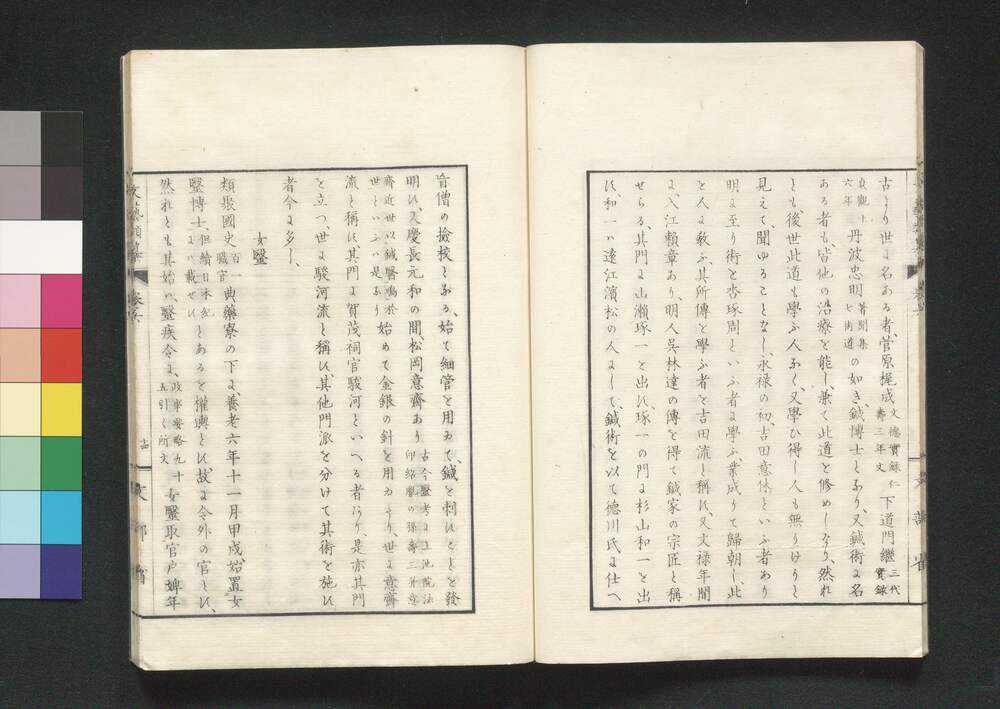 古より世に名ある者、菅原梶成文德實錄仁壽三年文下道門繼三代實錄
貞觀十六年丹波忠明著聞集七術道の如き、鍼博士となり、又鍼術に名
ある者も、皆他の治療を能し、兼て此道を修めしなり、然れ
とも後世此道を學ふ人なく、又學ひ得し人も無りけりと
見えて、聞ゆることなし、永禄の初、吉田意休といふ者あり
明に至り術を杏琢周といふ者に學ふ、業成りて歸朝し、此
を人に敎ふ、其所傳を學ふ者を吉田流と稱す、又文禄年間
に、入江賴章あり、明人吳林達の傳を得て鍼家の宗匠と稱
せらる、其門に山瀨琢一を出す、琢一の門に杉山和一を出
す、和一ハ遠江濱松の人にして、鍼術を以て德川氏に仕へ
文部省
盲僧の撿挍となる、始て細管を用ゐて、鍼を刺すことを發
明す、又慶長元和の間、松岡意齋あり古今醫考に上池院法印紹胤の孫壽三井意
齊近世以鍼醫鳴於世といふハ是なり始めて金銀の針を用ゐたり、世に意齋
流と稱す、其門に賀茂祠官駿河といへる者あり、是亦其門
を立つ、世に駿河流と稱す、其他門派を分けて其術を施す
者今に多し、
女醫
類聚國史百一職官典藥寮の下に、養老六年十一月甲戌、始置女
醫博士、但續日本紀にハ載せすとあるを權輿とす、故に令外の官とす、
然れとも其始ハ、醫疾令に、政事要略九十五引く所文女醫取官戸婢年
文藝類纂
卷六
古
文部省